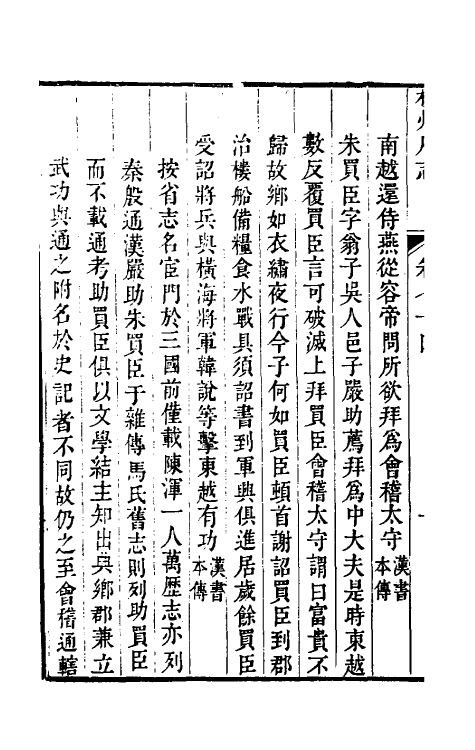 南越還侍燕從容帝問所欲拜爲會稽太守漢書本傳
朱買臣字翁子吳人邑子嚴助薦拜爲中大夫是時東越
數反覆買臣言可破滅上拜買臣會稽太守謂曰富貴不
歸故鄉如衣繡夜行今子何如買臣頓首謝詔買臣到郡
治樓船備糧食水戰具須詔書到軍興俱進居歲餘買臣
受詔將兵與橫海將軍韓說等擊東越有功漢書本傳
按省志名宦門於三國前僅載陳渾一人萬歷志亦列
秦殷通漢嚴助朱買臣于雜傳馬氏舊志則列助買臣
而不載通考助買臣俱以文學結主知出典鄉郡兼立
武功與通之附名於史記者不同故仍之至會稽通轄